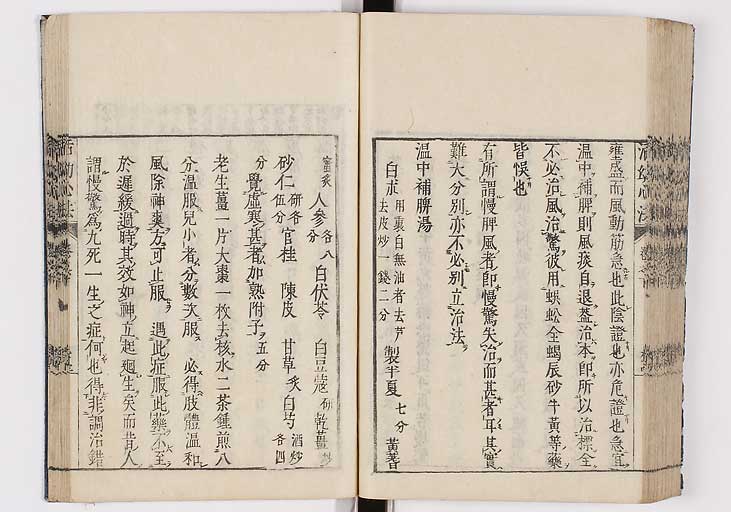 壅盛而風動筋急也此陰證也亦危證也急宜
温中補脾則風痰自退葢治本即所以治標全
不必治風治驚彼用蜈蚣全蝎辰砂牛黃等藥
皆悞也
有所謂慢脾風者即慢驚失治而甚者耳其實
難大分別亦不必別立治法
温中補脾湯
白朮 用裏白無油者去芦去皮炒一錢二分 製半夏 七分 黃蓍
蜜炙 人參各八分 白伏苓 白豆蔻研 乾薑炒
砂仁研各伍分 官桂 陳皮 甘草炙 白芍酒炒各四
分 覺虛寒甚者加熟附子五分
老生薑一片大棗一枚去核水二茶鍾煎八
分温服兒小者分數次服 必得肢體温和
風除神爽方可止服 遇此症服此藥不至
於遲緩過時其效如神立起廻生矣而昔人
謂慢驚爲九死一生之症何也得非調治錯